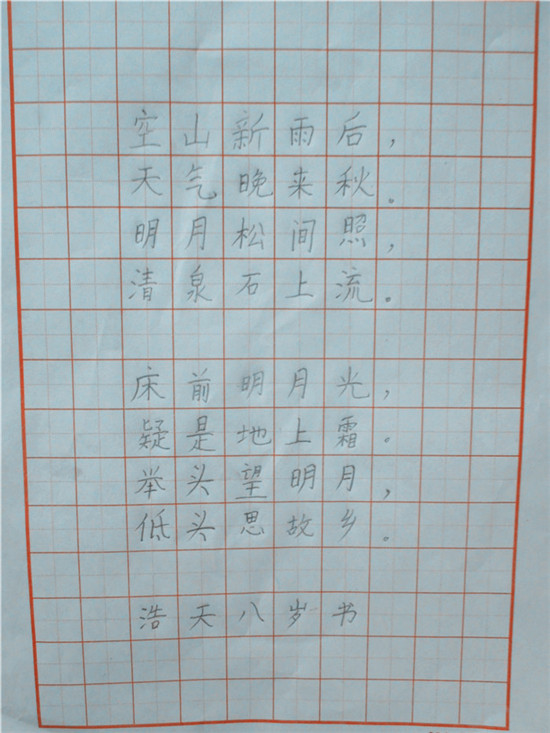 空山新雨后，
天气晚来秋。
明月松间照，
清泉石上流。
床前明月光，
疑是地上霜。
举头望明月，
低头思故乡。
浩天八岁书